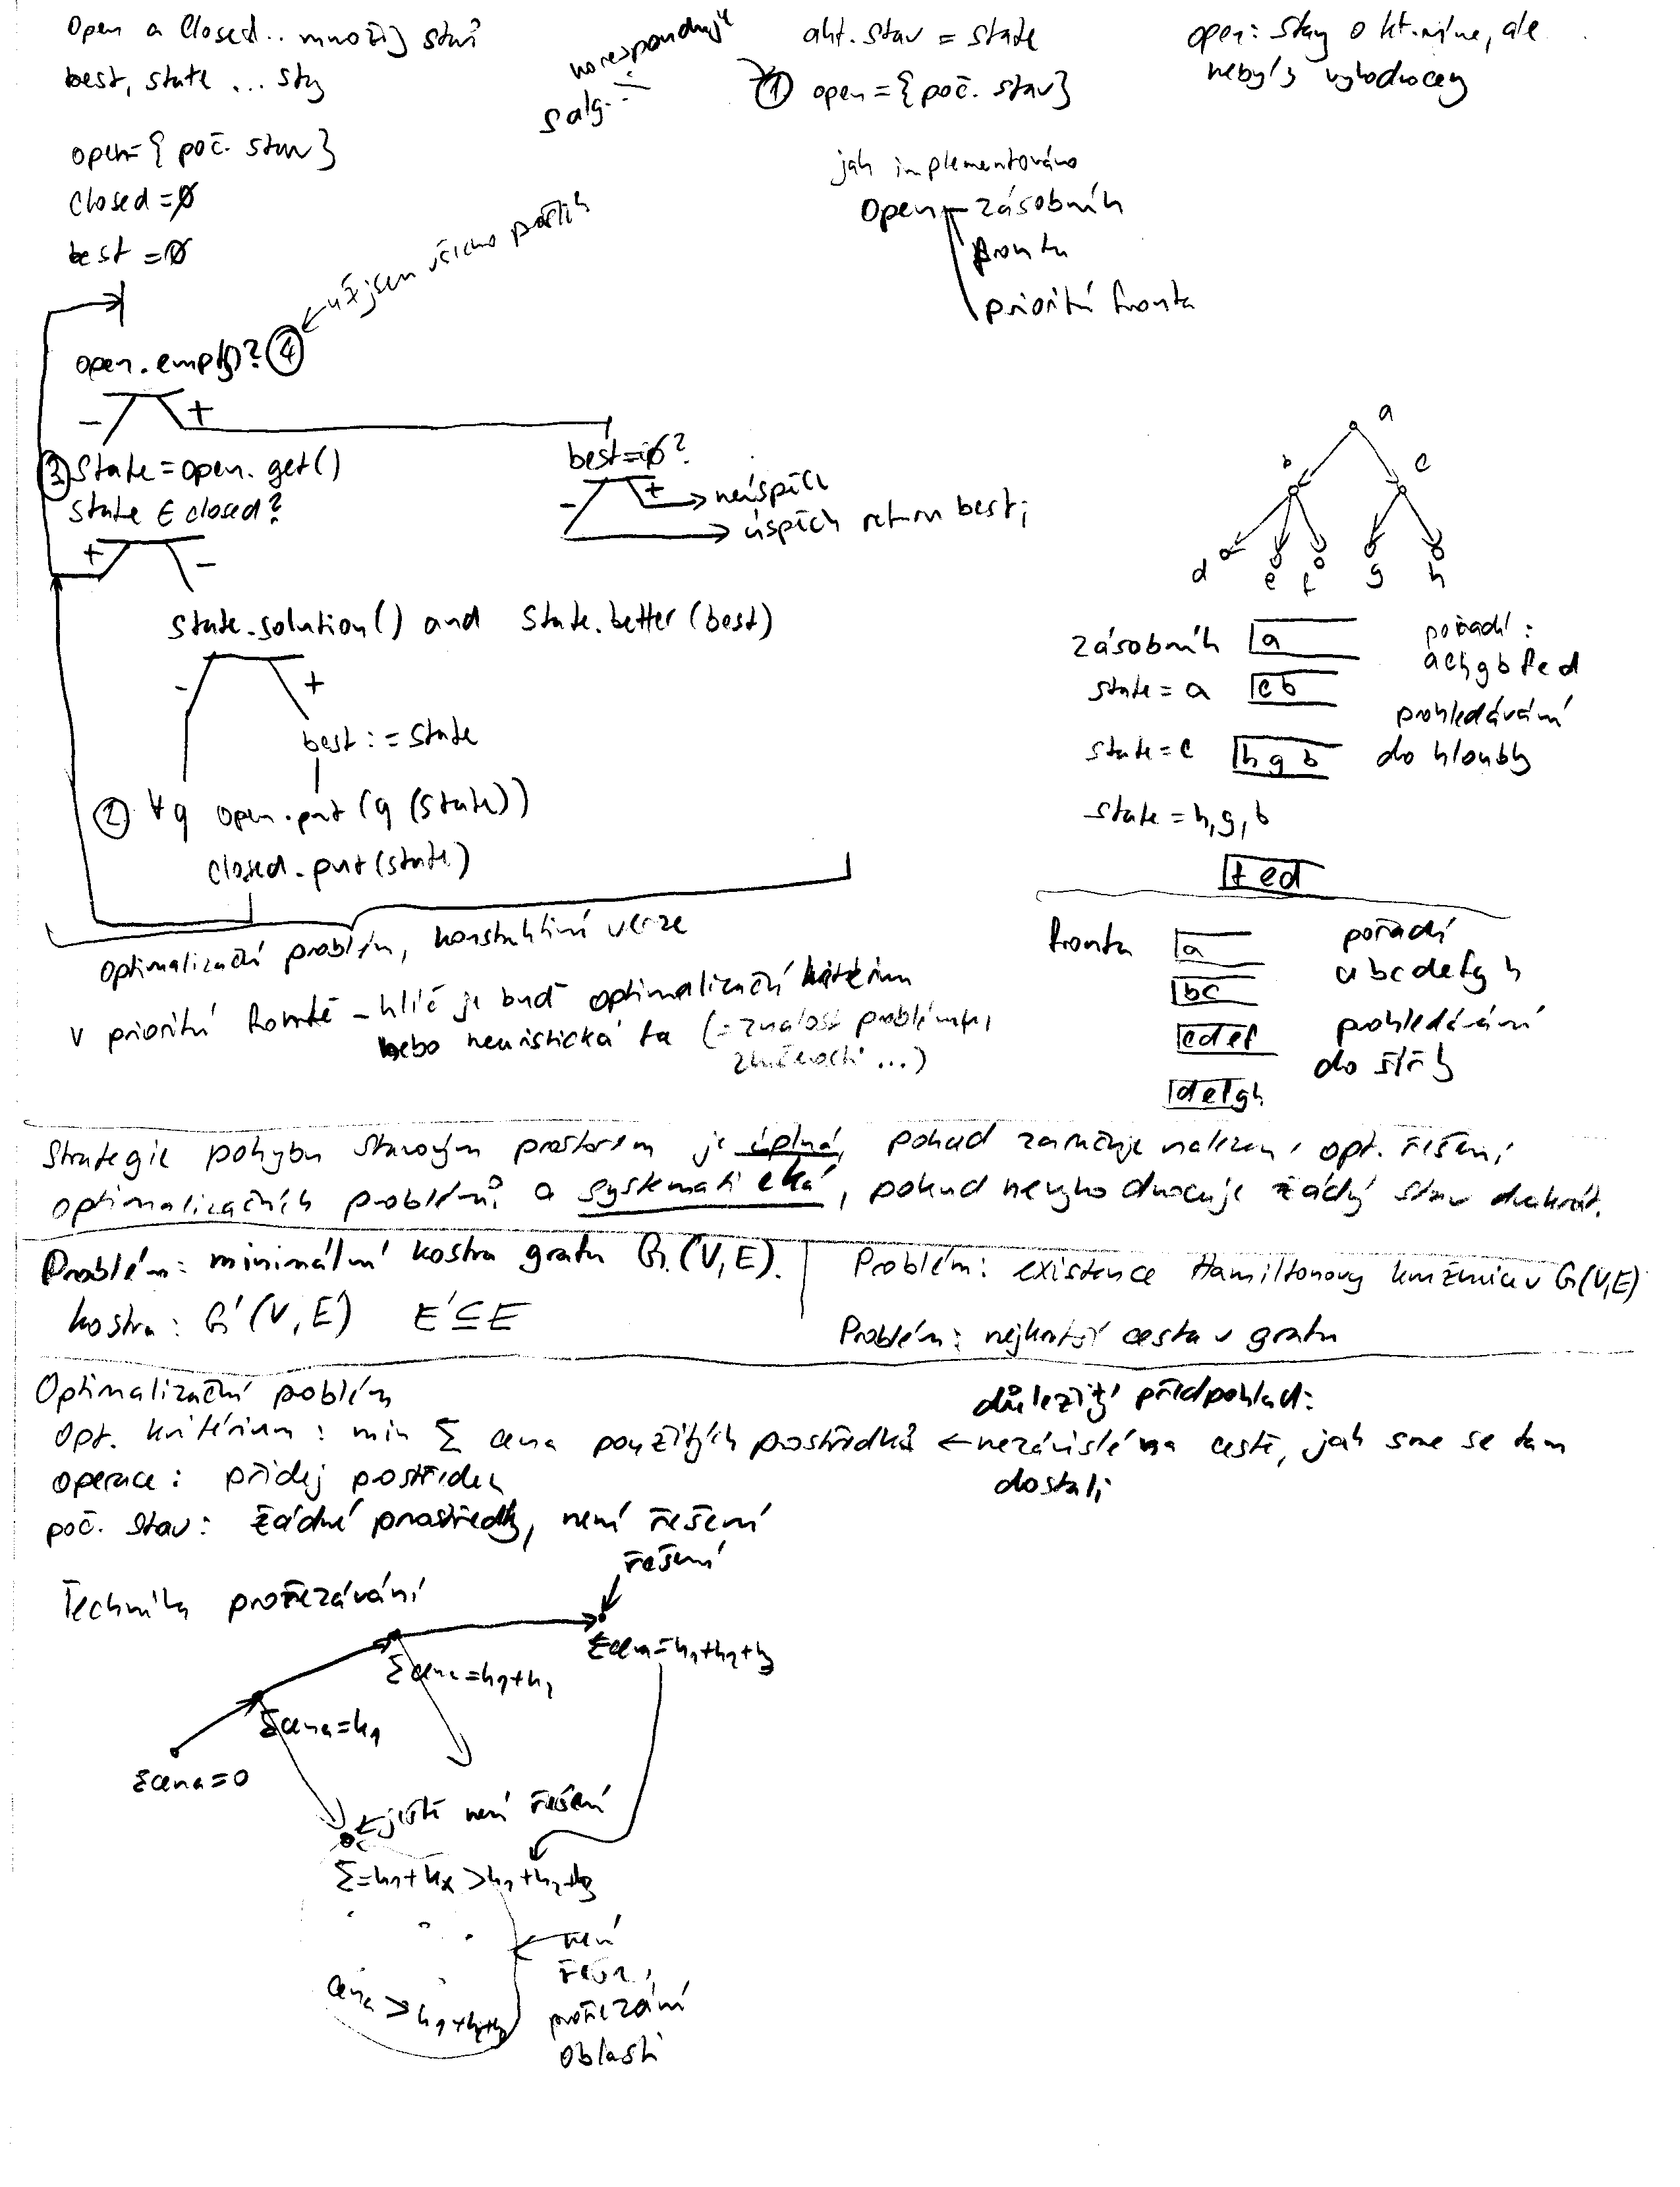 Open a Closed.. množiny stavů
best, state ... stavy
open={ poč. stav }
closed=∅
best =∅
koresponduje
s alg. :-
akt. stav = state
① open={poč. stav}
open: stavy o kt. víme, ale
nebyly vyhodnoceny
jak implementováno
open - zásobník
fronta
prioritní fronta
už jsem všechno prošel
open.empty? ④
- +
③ state=open.get()
state ∈ closed?
+ -
best=∅?
- + → neúspěch
→ úspěch return best;
state.solution() and state.better(best)
- +
best:=state
② ∀q open.put(q(state))
closed.put(state)
optimalizační problém, konstruktivní verze
v prioritní frontě - klíč je buď optimalizační kritérium
nebo heuristická fa (=znalost problému,
zkušenosti ...)
a
b c
d e f g h
zásobník a
pořadí:
achgbfed
state = a cb
prohledávání
do hloubky
state = c hgb
state = h,g,b
fed
fronta a
pořadí
abcdefgh
bc
cdef
prohledávání
do šířky
defgh
Strategie pohybu stavovým prostorem je úplná, pokud zaručuje nalezení opt. řešení
optimalizačních problémů a systematická, pokud nevyhodnocuje žádný stav dvakrát.
Problém: minimální kostra grafu G(V,E).
kostra: G'(V,E') E'⊆E
Problém: existence Hamiltonovy kružnice v G(V,E)
Problém: nejkratší cesta v grafu
Optimalizační poblém
Opt. kritérium: min Σ cena použitých prostředků ← nezávislé na cestě, jak sme se tam
dostali
důležitý předpoklad:
operace: přidej postředek
poč. stav: žádné prostředky, není řešení
řešení
Technika prořezávání
Σcena=0
Σcena=k₁
Σcena=k₁+k₂
Σcena=k₁+k₂+k₃
← jistě není řešení
Σ=k₁+kₓ>k₁+k₂+k₃
cena > k₁+k₂+k₃
není
řešení,
prořezání
oblasti